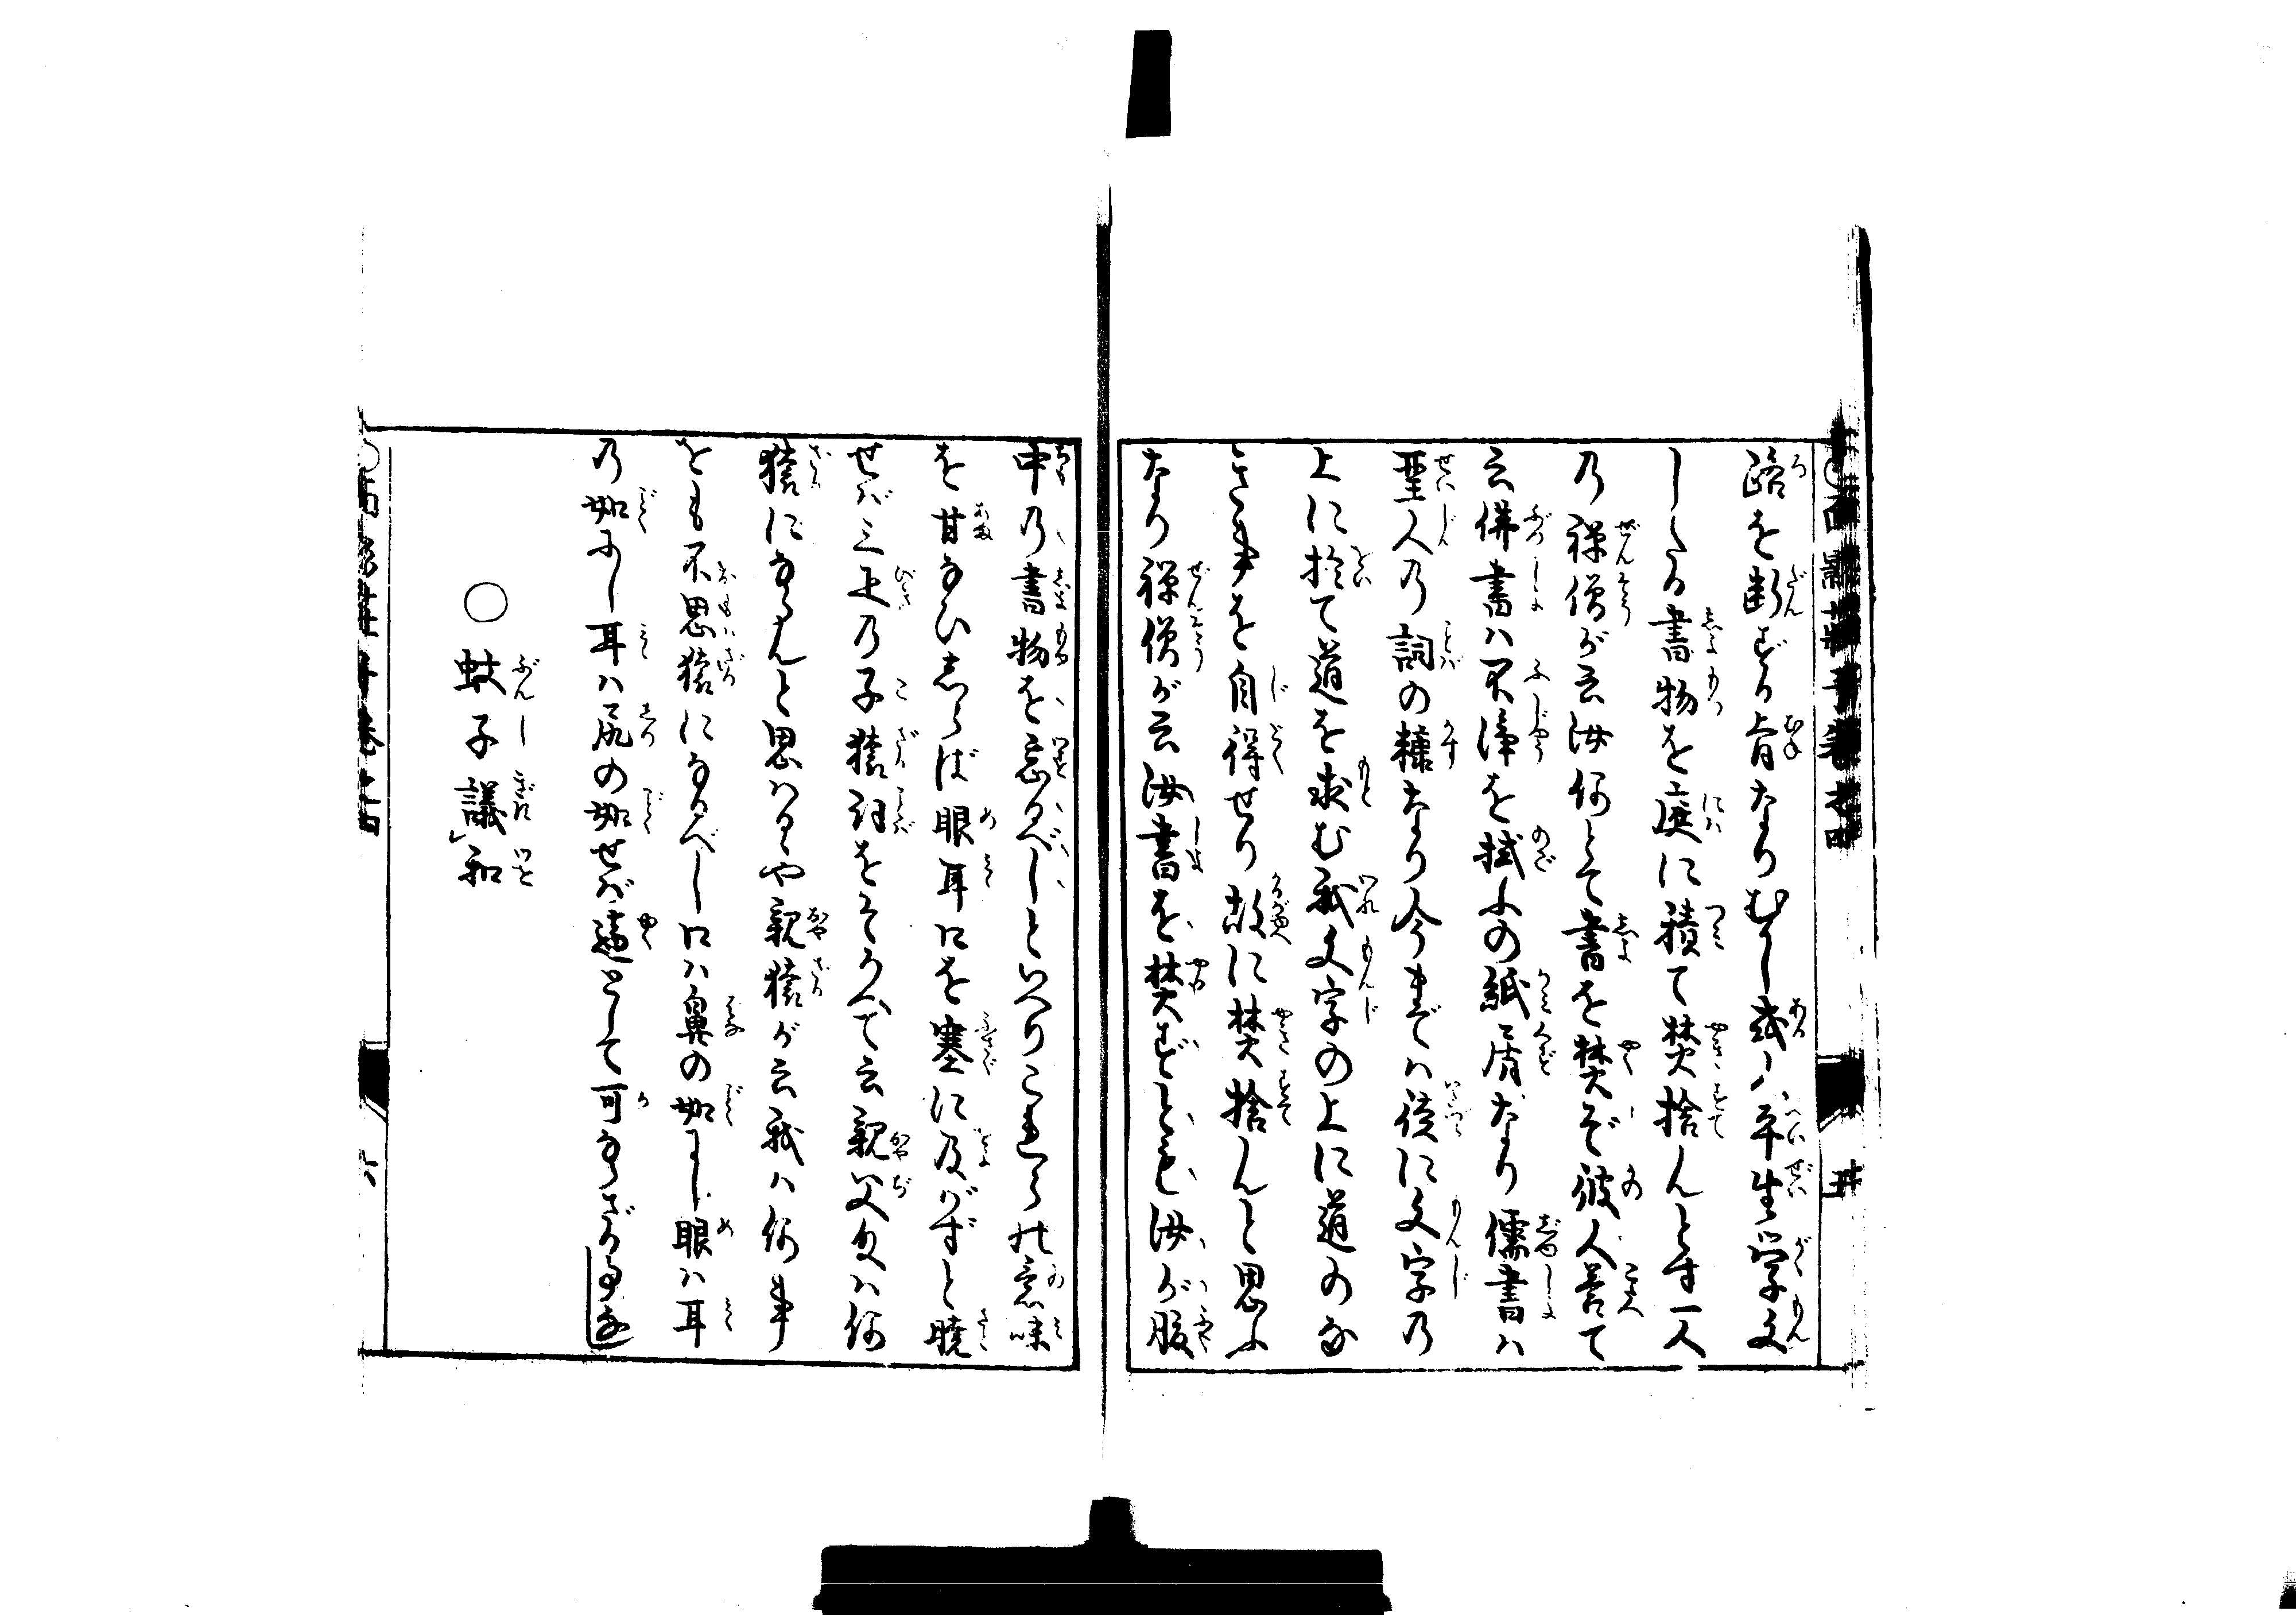 路を断ずる旨なりむかし或人平生学文
したる書物を庭に積て焚捨んとす一人
の禅僧が云汝何とて書を焚ぞ彼人答て
云佛書ハ不浄を拭ふの紙屑なり儒書ハ
聖人の詞の糟なり今までハ徒に文字の
上に於て道を求む我文字の上に道のな
き事を自得せり故に焚捨んと思ふ
なり禅僧が云汝書を焚ずとも汝が腹
中の書物を忘るべしといへりこれらの意味
を甘なひしらば眼耳口を塞に及がずと暁
せば三疋の子猿詞をそろへて云親父父ハ何
猿にならんと思ハるゝや親猿が云我ハ何事
をも不思猿になるべし口ハ鼻の如し眼ハ耳
の如し耳ハ尻の如せば寤として可ならざる事なし
○蚊子議和